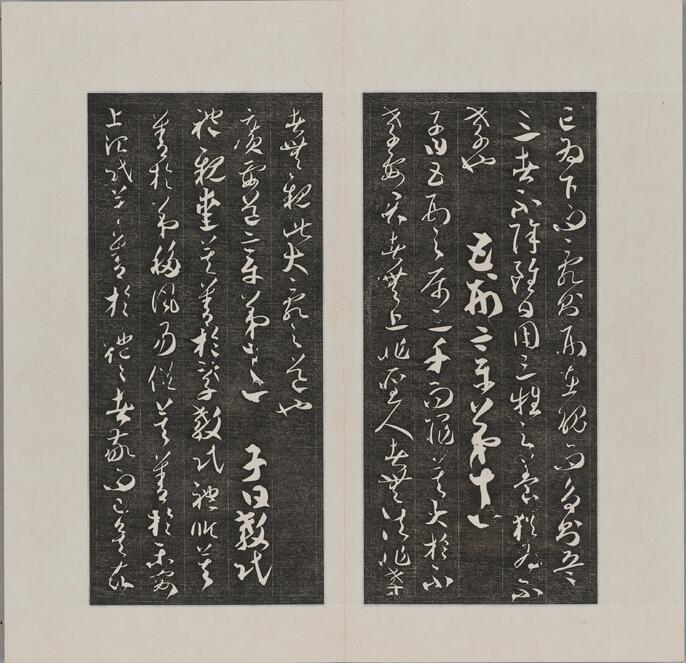 亡為下而亂則刑在醜而爭則兵
三者不除雖日用三牲之養猶為不
孝也 五刑章第十一
子曰五刑之屬三千而罪莫大於不
孝要君者無上非聖人者無法非孝
者無親此大亂之道也
廣要道章第十二 子曰教民
親愛莫善於孝教民禮順莫
善於弟移風易俗莫善於樂安
上治民莫善於禮禮者敬而已矣故